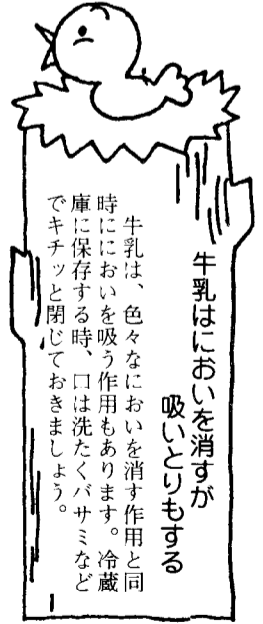 牛乳はにおいを消すが
吸いとりもする
牛乳は、色々なにおいを消す作用と同
時ににおいを吸う作用もあります。冷蔵
庫に保存する時、口は洗たくバサミなど
でキチッと閉じておきましょう。